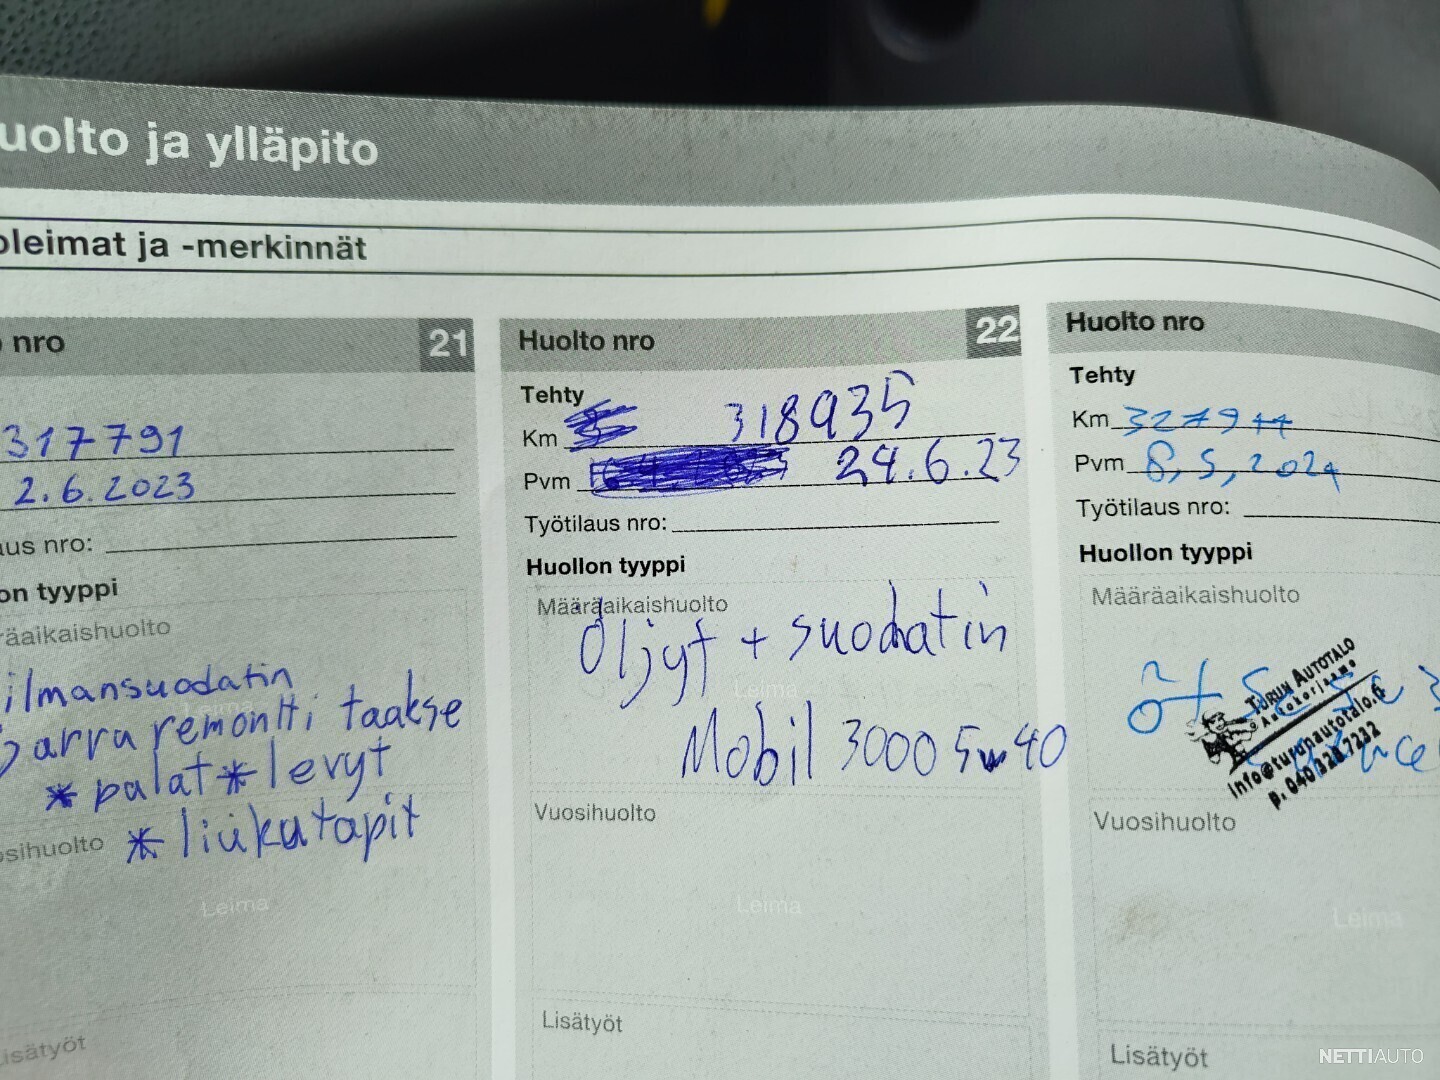 uolto ja ylläpito
oleimat ja -merkinnät
nro 21
317791
2.6.2023
aus nro:
on tyyppi
räaikaishuolto
ilmansuodatin
Jarru remontti taakse
* palat * levyt
osihuolto
* liukutapit
Leima
isätyöt
Huolto nro 22
Tehty
Km 318935
Pvm 24.6.23
Työtilaus nro:
Huollon tyyppi
Määräaikaishuolto
Öljyt + suodatin
Leima
Mobil 3000 5w40
Vuosihuolto
Leima
Lisätyöt
Huolto nro
Tehty
Km
Pvm 8,5,2024
Työtilaus nro:
Huollon tyyppi
Määräaikaishuolto
TURUN AUTOTALO
Autokorjaamo
info@turunautotalo.fi
Vuosihuolto
Leima
Lisätyöt
NETTIAUTO